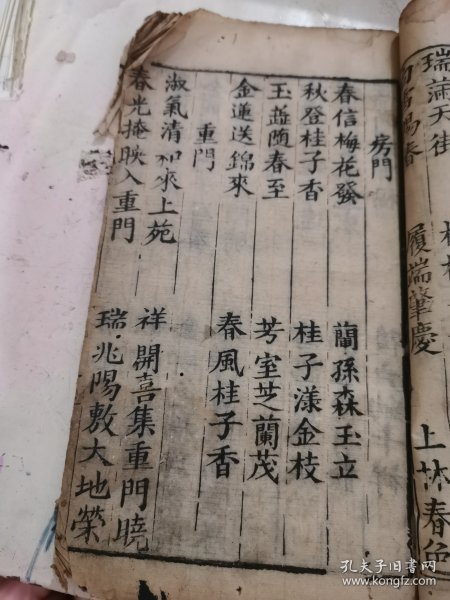 瑞滿天街
履端肇慶
上林春色
房門
春信梅花發
蘭孫森玉立
秋登桂子香
桂子漾金枝
玉蕊随春至
芳室芝蘭茂
金蓮送錦來
春風桂子香
重門
淑氣清和來上苑
祥開喜集重門曉
春光掩映入重門
瑞兆陽敷大地榮
孔夫子旧书网
www.kongfz.com